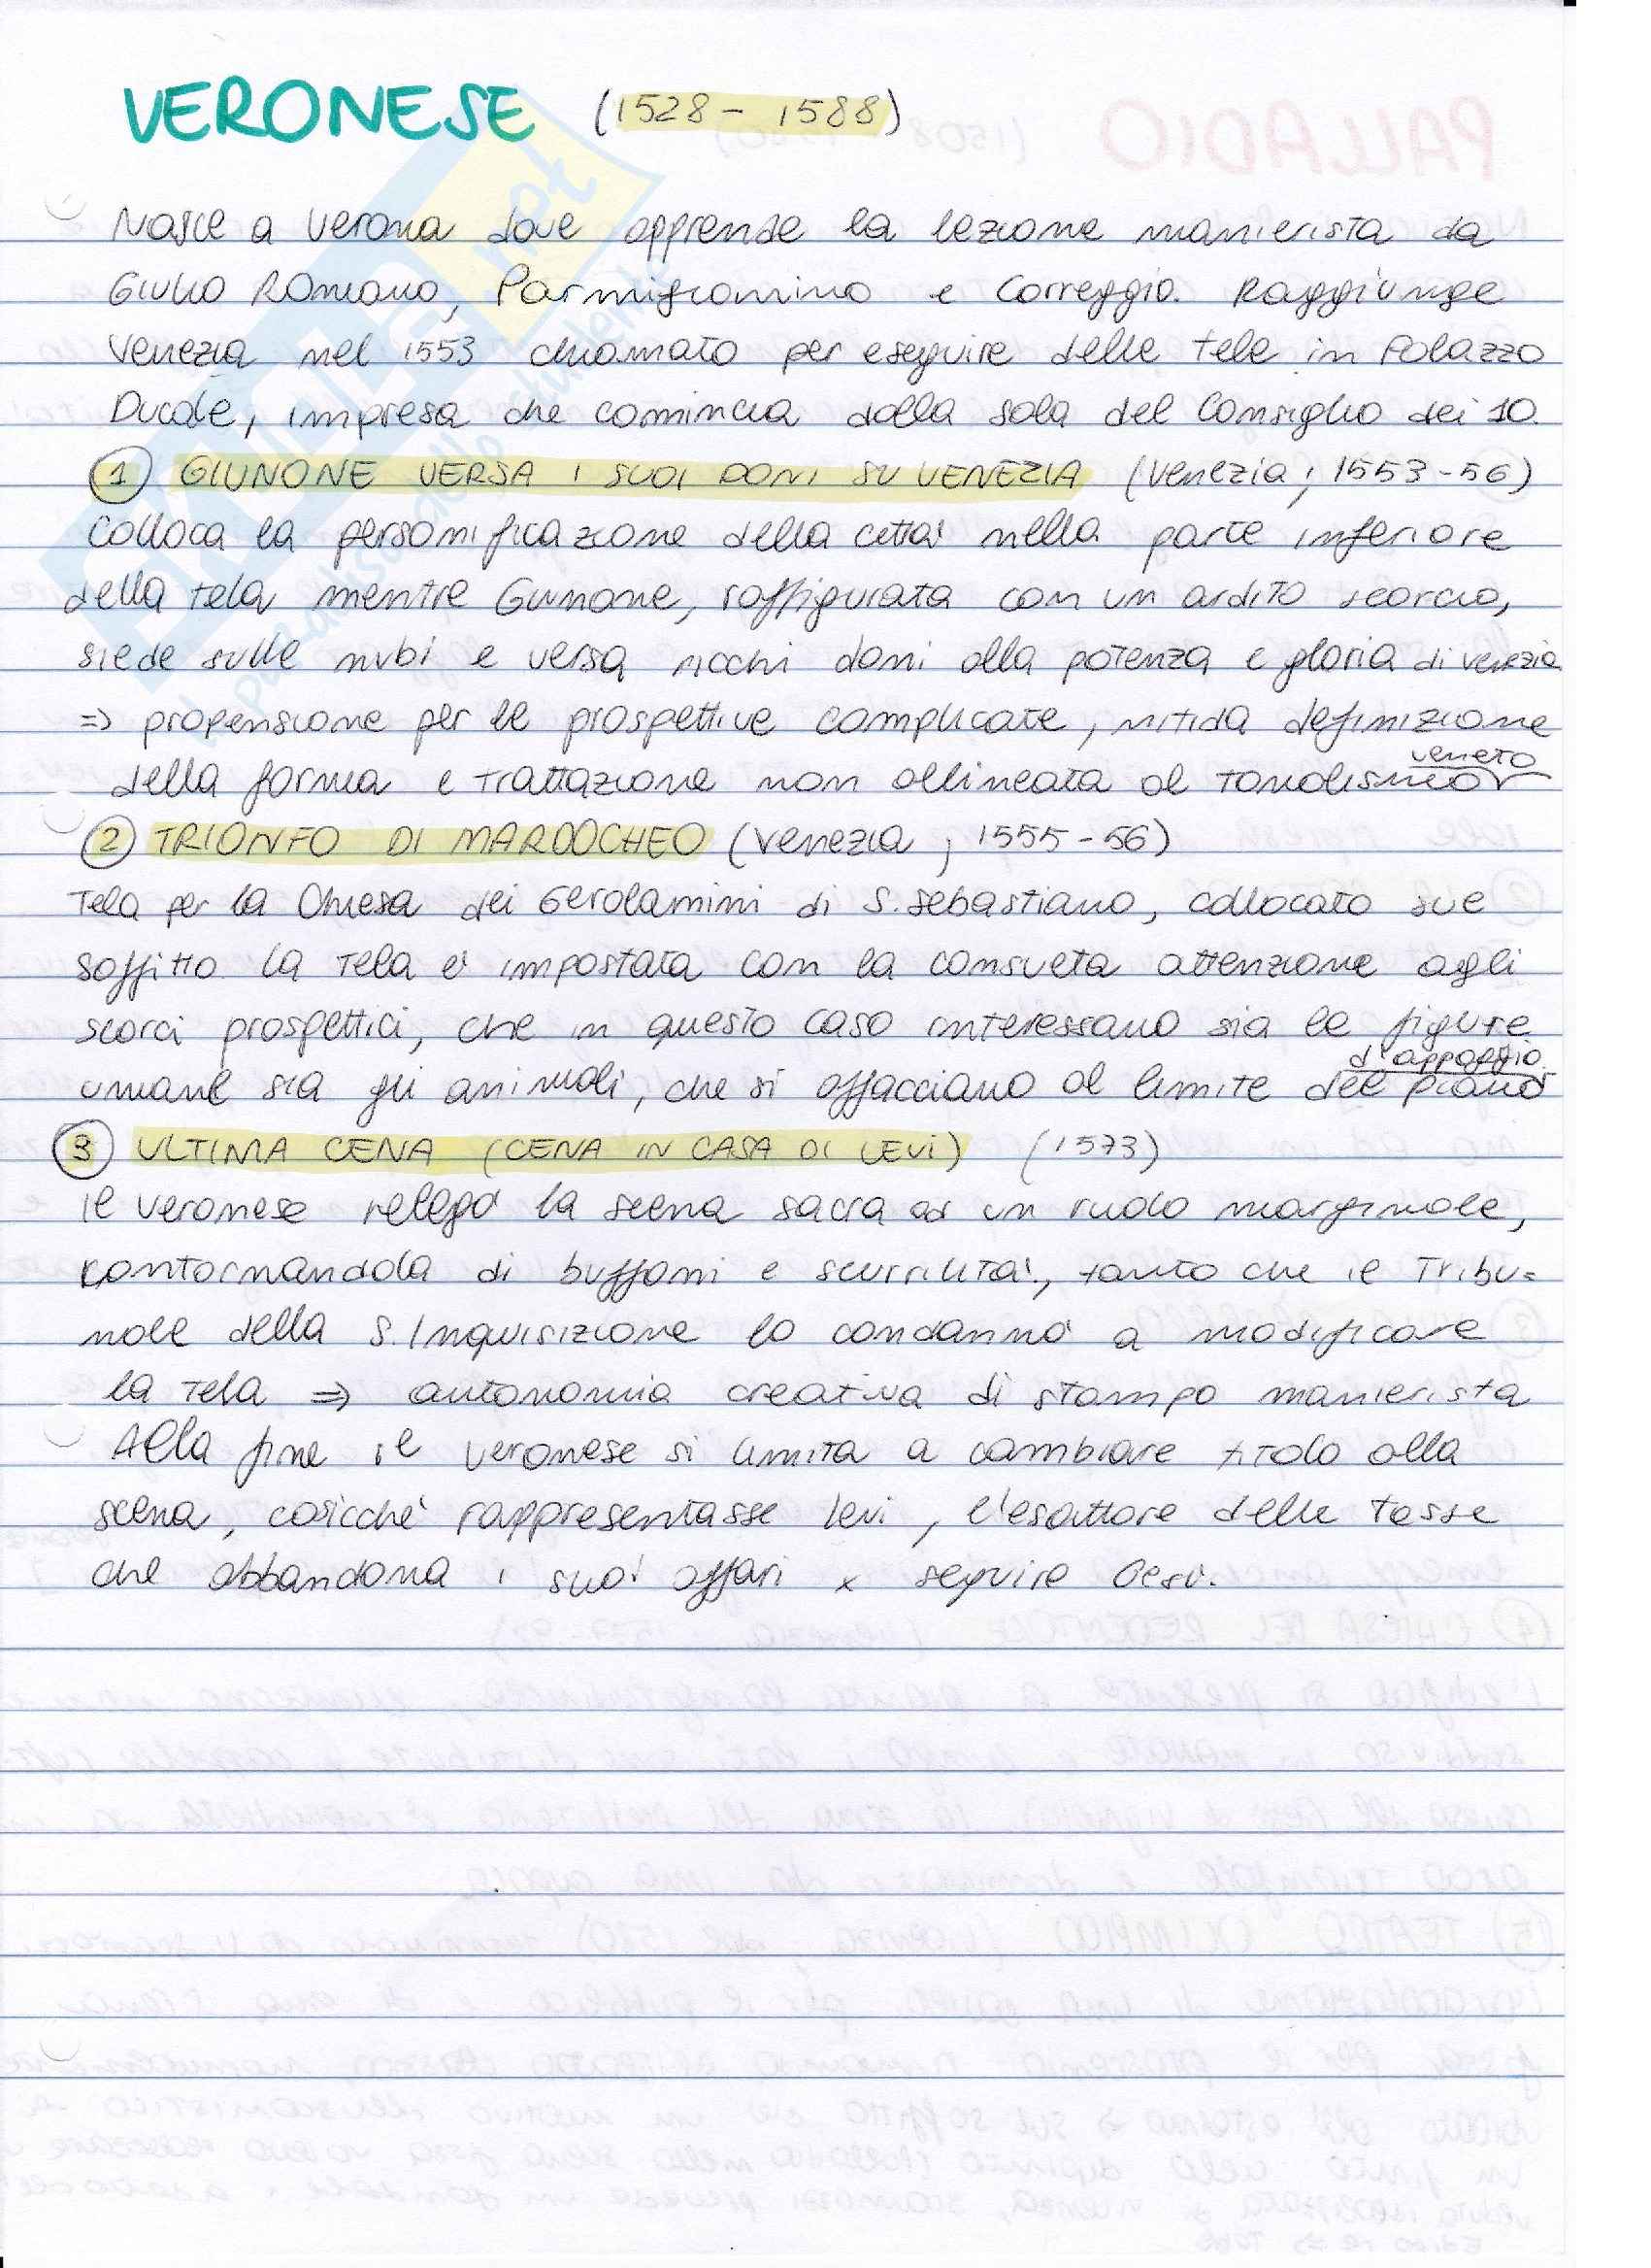 VERONESE (1528 - 1588)
Nasce a Verona dove apprende la lezione manierista da
Giulio Romano, Parmigianino e Correggio. Raggiunge
Venezia nel 1553 chiamato per eseguire delle tele in Palazzo
Ducale, impresa che comincia dalla sala del Consiglio dei 10.
1 GIUNONE VERSA I SUOI DONI SU VENEZIA (Venezia; 1553-56)
Colloca la personificazione della città nella parte inferiore
della tela mentre Giunone, raffigurata con un ardito scorcio,
siede sulle nubi e versa ricchi doni alla potenza e gloria di Venezia
=> propensione per le prospettive complicate, nitida definizione
della forma e trattazione non allineata al tonalismo veneto
2 TRIONFO DI MARDOCHEO (Venezia; 1555-56)
Tela per la Chiesa dei Gerolamini di S. Sebastiano, collocato sul
soffitto. La tela è impostata con la consueta attenzione agli
scorci prospettici, che in questo caso interessano sia le figure
umane sia gli animali, che si affacciano al limite del piano d'appoggio
3 ULTIMA CENA (CENA IN CASA DI LEVI) (1573)
Il Veronese relegò la scena sacra ad un ruolo marginale,
contornandola di buffoni e scurrilità, tanto che il Tribu=
nale della S. Inquisizione lo condannò a modificare
la tela => autonomia creativa di stampo manierista
Alla fine il Veronese si limita a cambiare titolo alla
scena, cosicché rappresentasse Levi, l'esattore delle tasse
che abbandona i suoi affari x seguire Gesù.